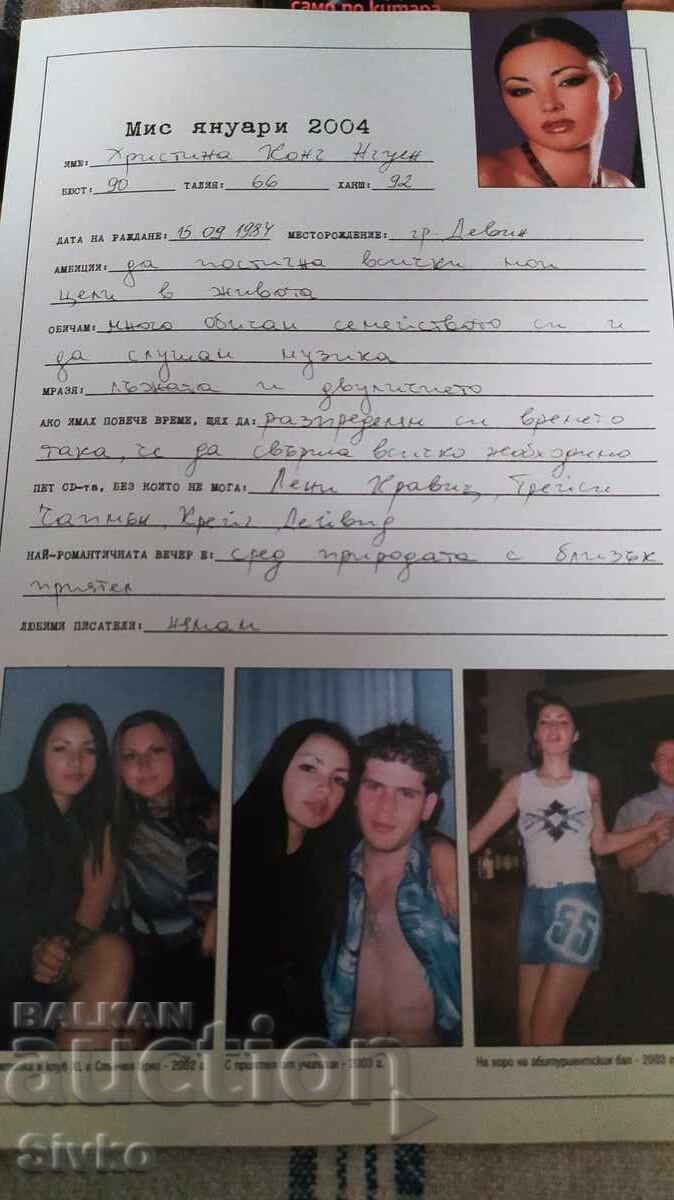 само по китара
Мис януари 2004
ИМЕ: Христина Конг Нгуен
БЮСТ: 90 ТАЛИЯ: 66 ХАНШ: 92
ДАТА НА РАЖДАНЕ: 15.09 1984 МЕСТОРОЖДЕНИЕ: гр. Девин
АМБИЦИИ: да постигна всички мои
цели в живота
ОБИЧАМ: много обичам семейството си и
да слушам музика
МРАЗЯ: лъжата и двуличието
АКО ИМАХ ПОВЕЧЕ ВРЕМЕ, ЩЯХ ДА: разпределям си времето
така, че да свърша всичко необходимо
ПЕТ CD-та, БЕЗ КОИТО НЕ МОГА: Лени Кравиц, Трейси
Чапмън, Крейг Дейвид
НАЙ-РОМАНТИЧНАТА ВЕЧЕР Е: сред природата с близък
приятел
ЛЮБИМИ ПИСАТЕЛИ: нямам
в клуб XL в Слънчев бряг - 2002 г.
С приятел от училище - 2003 г.
На хоро на абитуриентския бал - 2003 г.
BALKAN
auction
Sivko